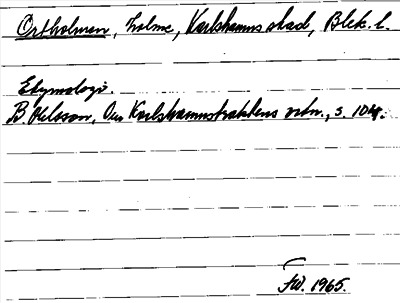 Ortholmen, holme, Karlshamns stad, Blek. l.
Etymologi.
B. Helsson, Om Karlshamnstraktens ortn., s. 104.
1965.